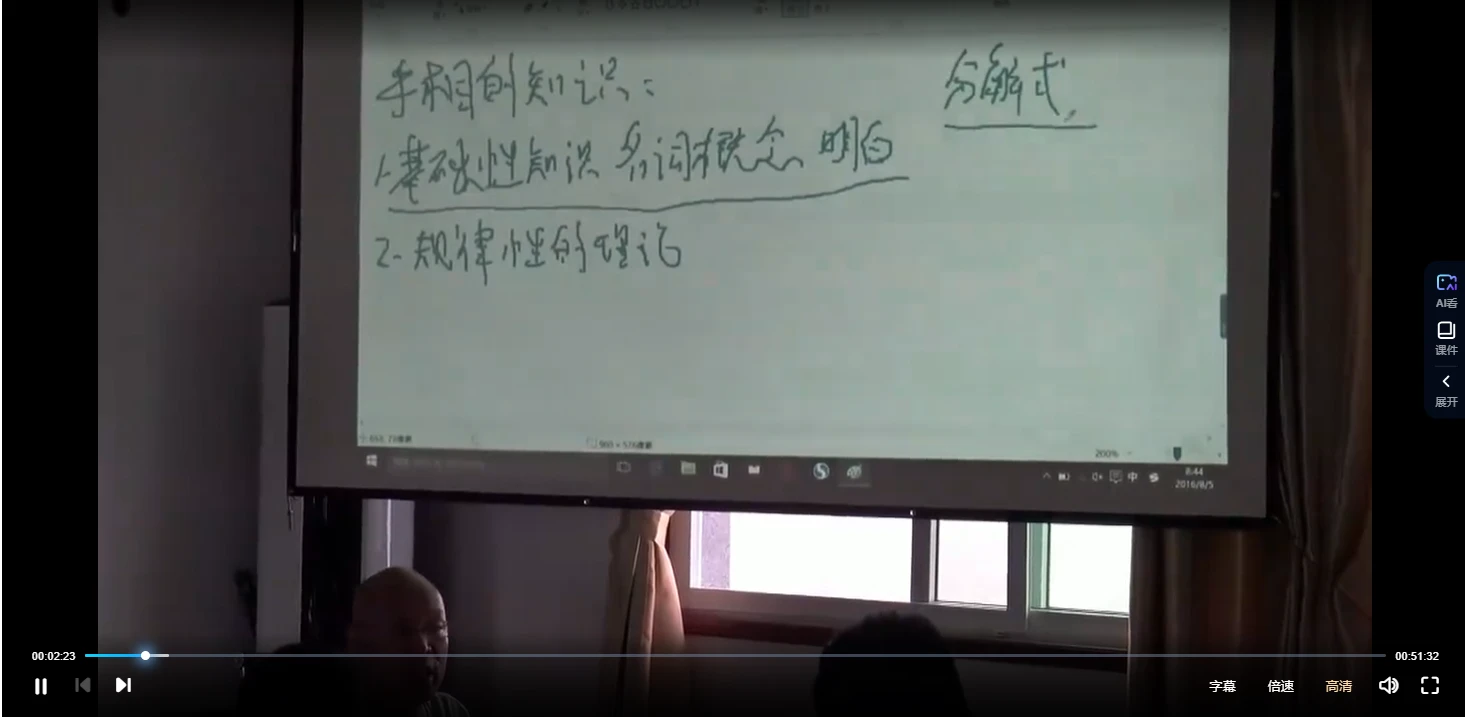 手相的知识: 分解式
1.基础性知识 名词概念 明白
2.规律性的理论
200%
中
8:44
2016/8/5
AI看
课件
展开
00:02:23 00:51:32
字幕 倍速 高清